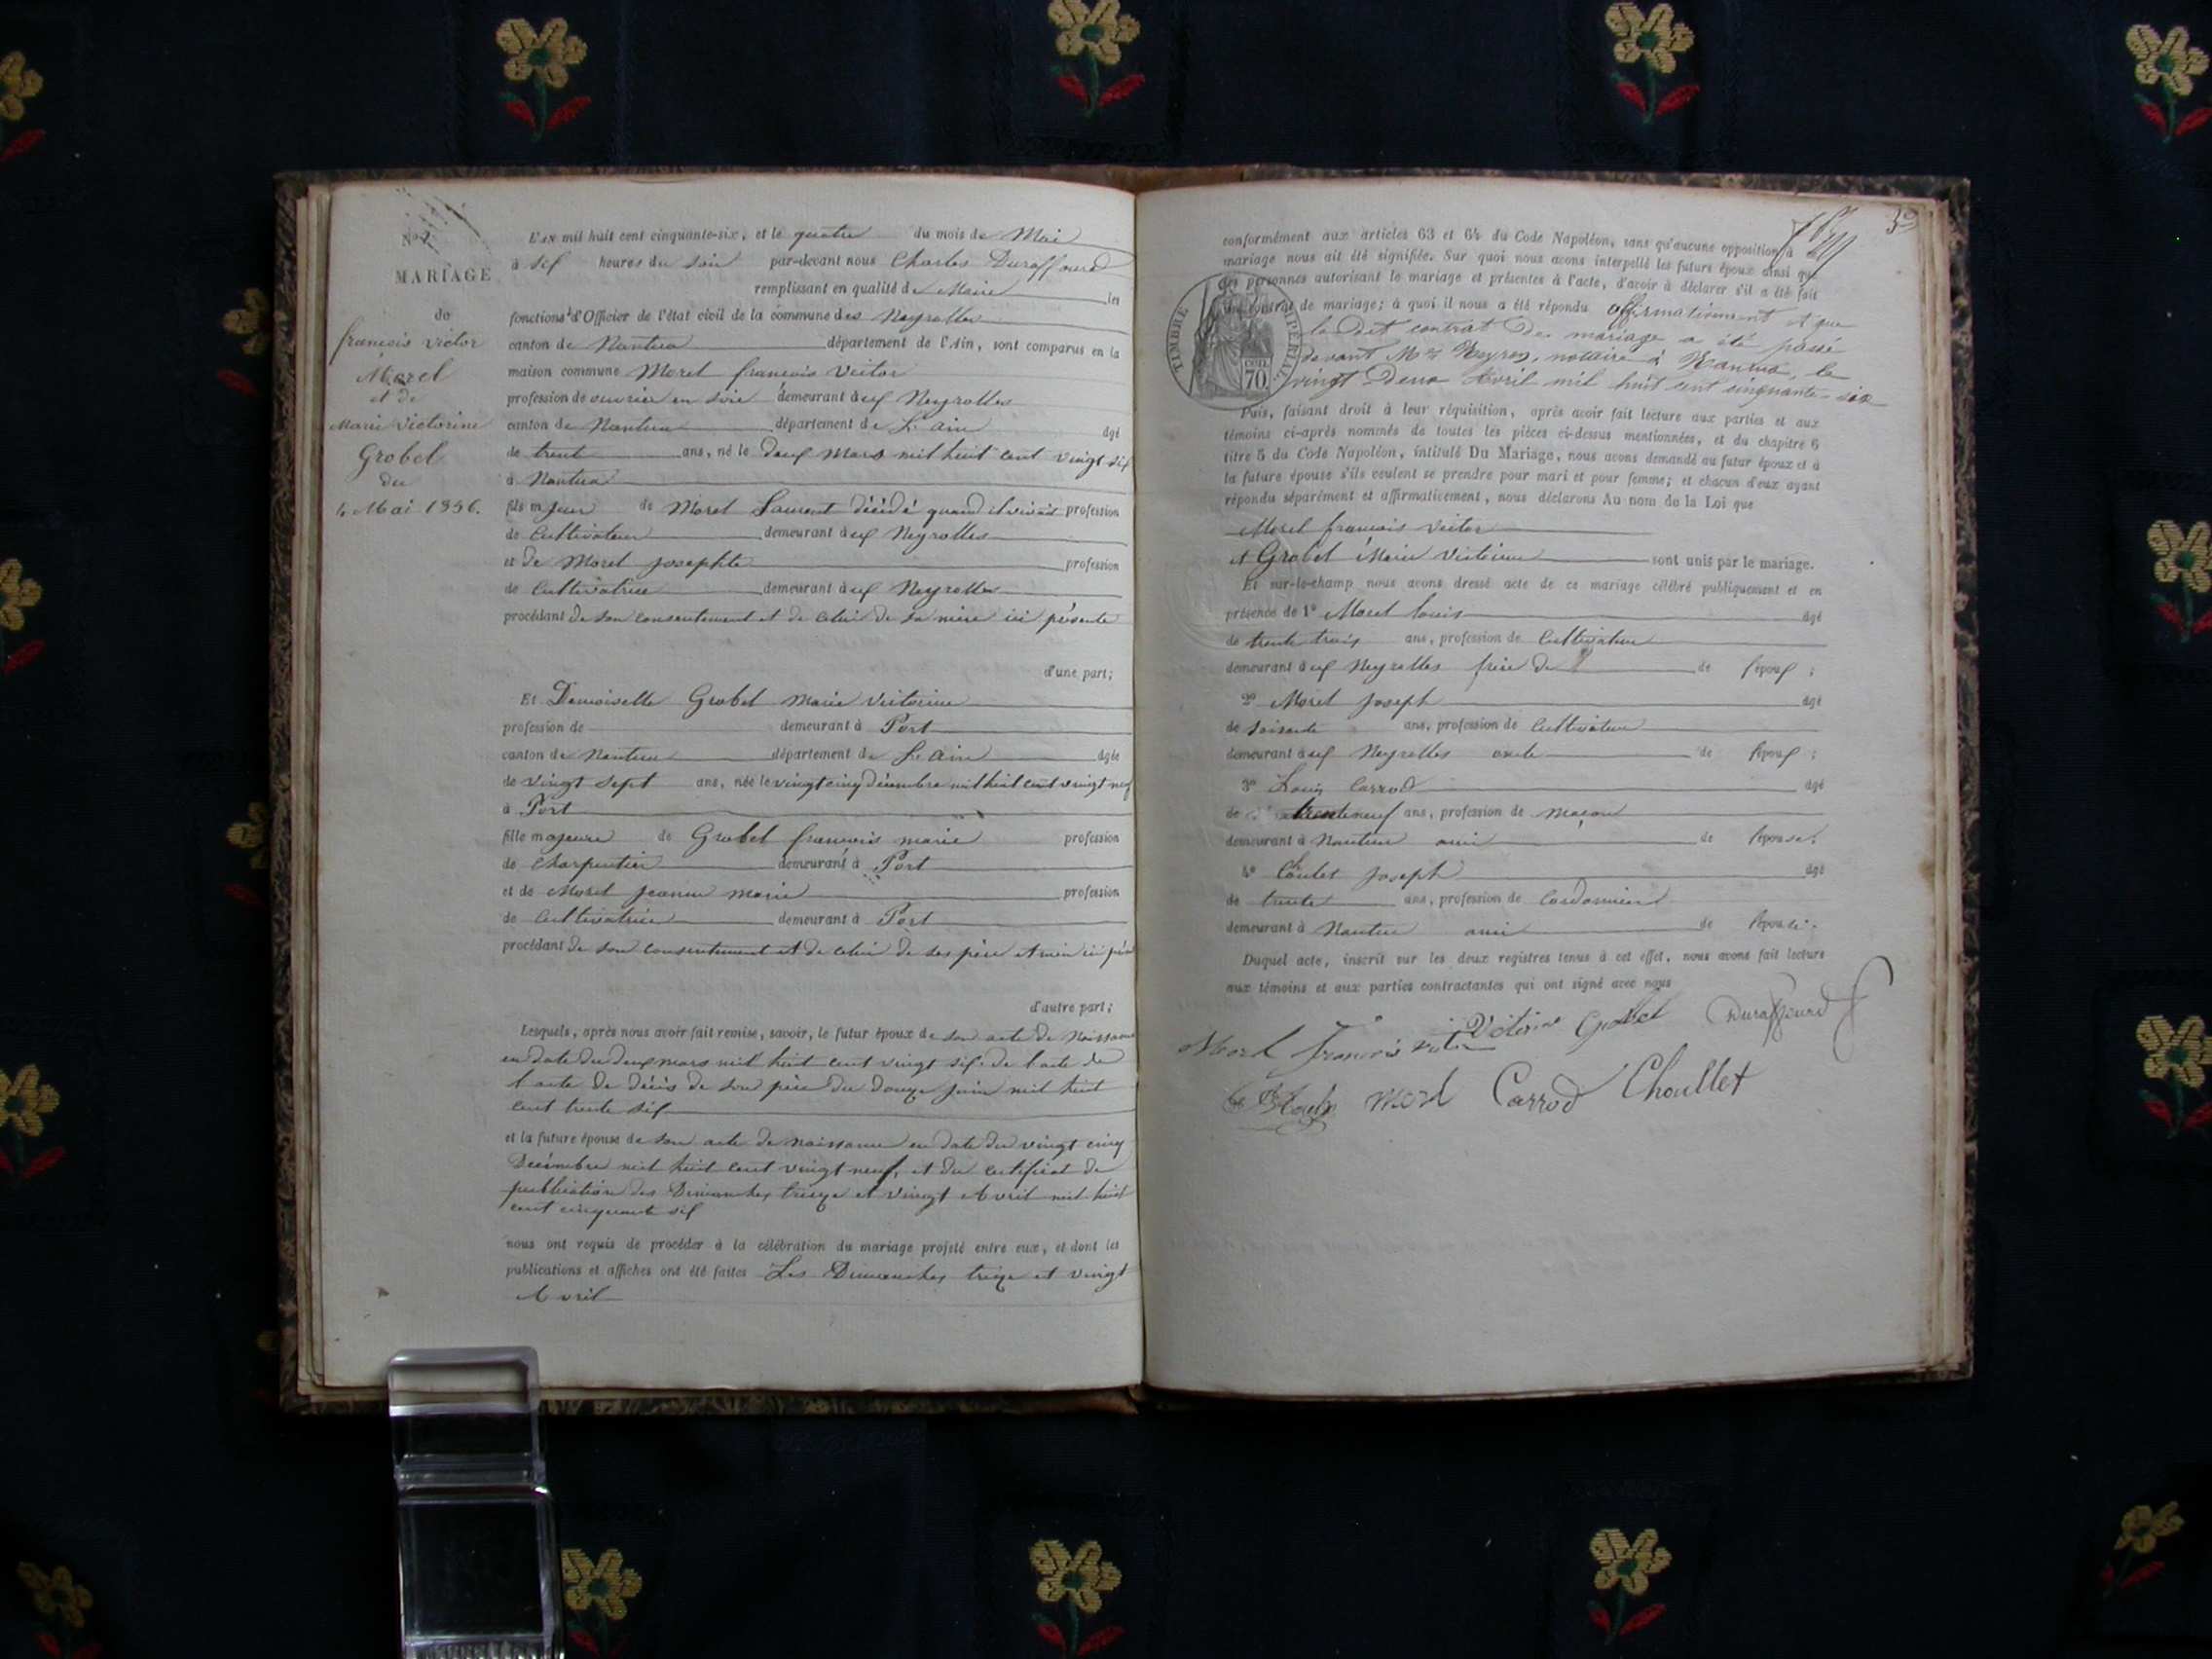 MARIAGE
de
francois victor
Morel
et de
Marie Victorine
Grobel
du
4 Mai 1856.
L'AN mil huit cent cinquante-six, et le quatre du mois de Mai
à six heures du soir par-devant nous Charles Duraffourd
remplissant en qualité de Maire les
fonctions d'Officier de l'état civil de la commune des Neyrolles
canton de Nantua département de l'Ain, sont comparus en la
maison commune Morel francois victor
profession de ouvrier en soie demeurant aux Neyrolles
canton de Nantua département de L'ain âgé
de trente ans, né le deux Mars mil huit cent vingt six
à Nantua
fils majeur de Morel Laurent décédé quand il vivait profession
de Cultivateur demeurant aux Neyrolles
et de Morel josephte profession
de Cultivatrice demeurant aux Neyrolles
procédant de son consentement et de celui de sa mère ici présente
d'une part;
Et Demoiselle Grobel Marie Victorine
profession de demeurant à Port
canton de Nantua département de L'ain âgée
de vingt sept ans, née le vingt cinq décembre mil huit cent vingt neuf
à Port
fille majeure de Grobel francois marie profession
de Charpentier demeurant à Port
et de Morel jeanne marie profession
de Cultivatrice demeurant à Port
procédant de son consentement et de celui de ses père et mère ici
d'autre part;
Lesquels, après nous avoir fait remise, savoir, le futur époux de son acte de Naissance
en date du deux mars mil huit cent vingt six. de l'acte de
l'acte de décès de son père du douze juin mil huit
cent trente six
et la future épouse de son acte de naissance en date du vingt cinq
Décembre mil huit cent vingt neuf, et du certificat de
publication des Dimanches treize et vingt Avril mil huit
cent cinquante six
nous ont requis de procéder à la célébration du mariage projeté entre eux, et dont les
publications et affiches ont été faites Les Dimanches treize et vingt
Avril
39
conformément aux articles 63 et 64 du Code Napoléon, sans qu'aucune opposition à
mariage nous ait été signifiée. Sur quoi nous avons interpellé les futurs époux ainsi que
les personnes autorisant le mariage et présentes à l'acte, d'avoir à déclarer s'il a été fait
un contrat de mariage; à quoi il nous a été répondu affirmativement et que
le dit contrat de mariage a été passé
devant Me Reyrez, nottaire à Nantua, le
vingt Deux Avril mil huit cent cinquante-six
TIMBRE IMPÉRIAL
70
Puis, faisant droit à leur réquisition, après avoir fait lecture aux parties et aux
témoins ci-après nommés de toutes les pièces ci-dessus mentionnées, et du chapitre 6
titre 5 du Code Napoléon, intitulé Du Mariage, nous avons demandé au futur époux et à
la future épouse s'ils veulent se prendre pour mari et pour femme; et chacun d'eux ayant
répondu séparément et affirmativement, nous déclarons Au nom de la Loi que
Morel francois victor
et Grobel Marie Victorine sont unis par le mariage.
Et sur-le-champ nous avons dressé acte de ce mariage célébré publiquement et en
présence de 1º Morel louis âgé
de trente trois ans, profession de Cultivateur
demeurant aux Neyrolles frère de de l'époux ;
2º Morel joseph âgé
de soixante ans, profession de Cultivateur
demeurant aux Neyrolles oncle de l'époux ;
3º Louis Carrod âgé
de trente neuf ans, profession de maçon
demeurant à Nantua ami de l'épouse.
4º Choulet joseph âgé
de trente ans, profession de Cordonnier
demeurant à Nantua ami de l'épouse.
Duquel acte, inscrit sur les deux registres tenus à cet effet, nous avons fait lecture
aux témoins et aux parties contractantes qui ont signé avec nous
Victorine Grobel Duraffourd
Morel francois victor
Morel Carrod Choullet